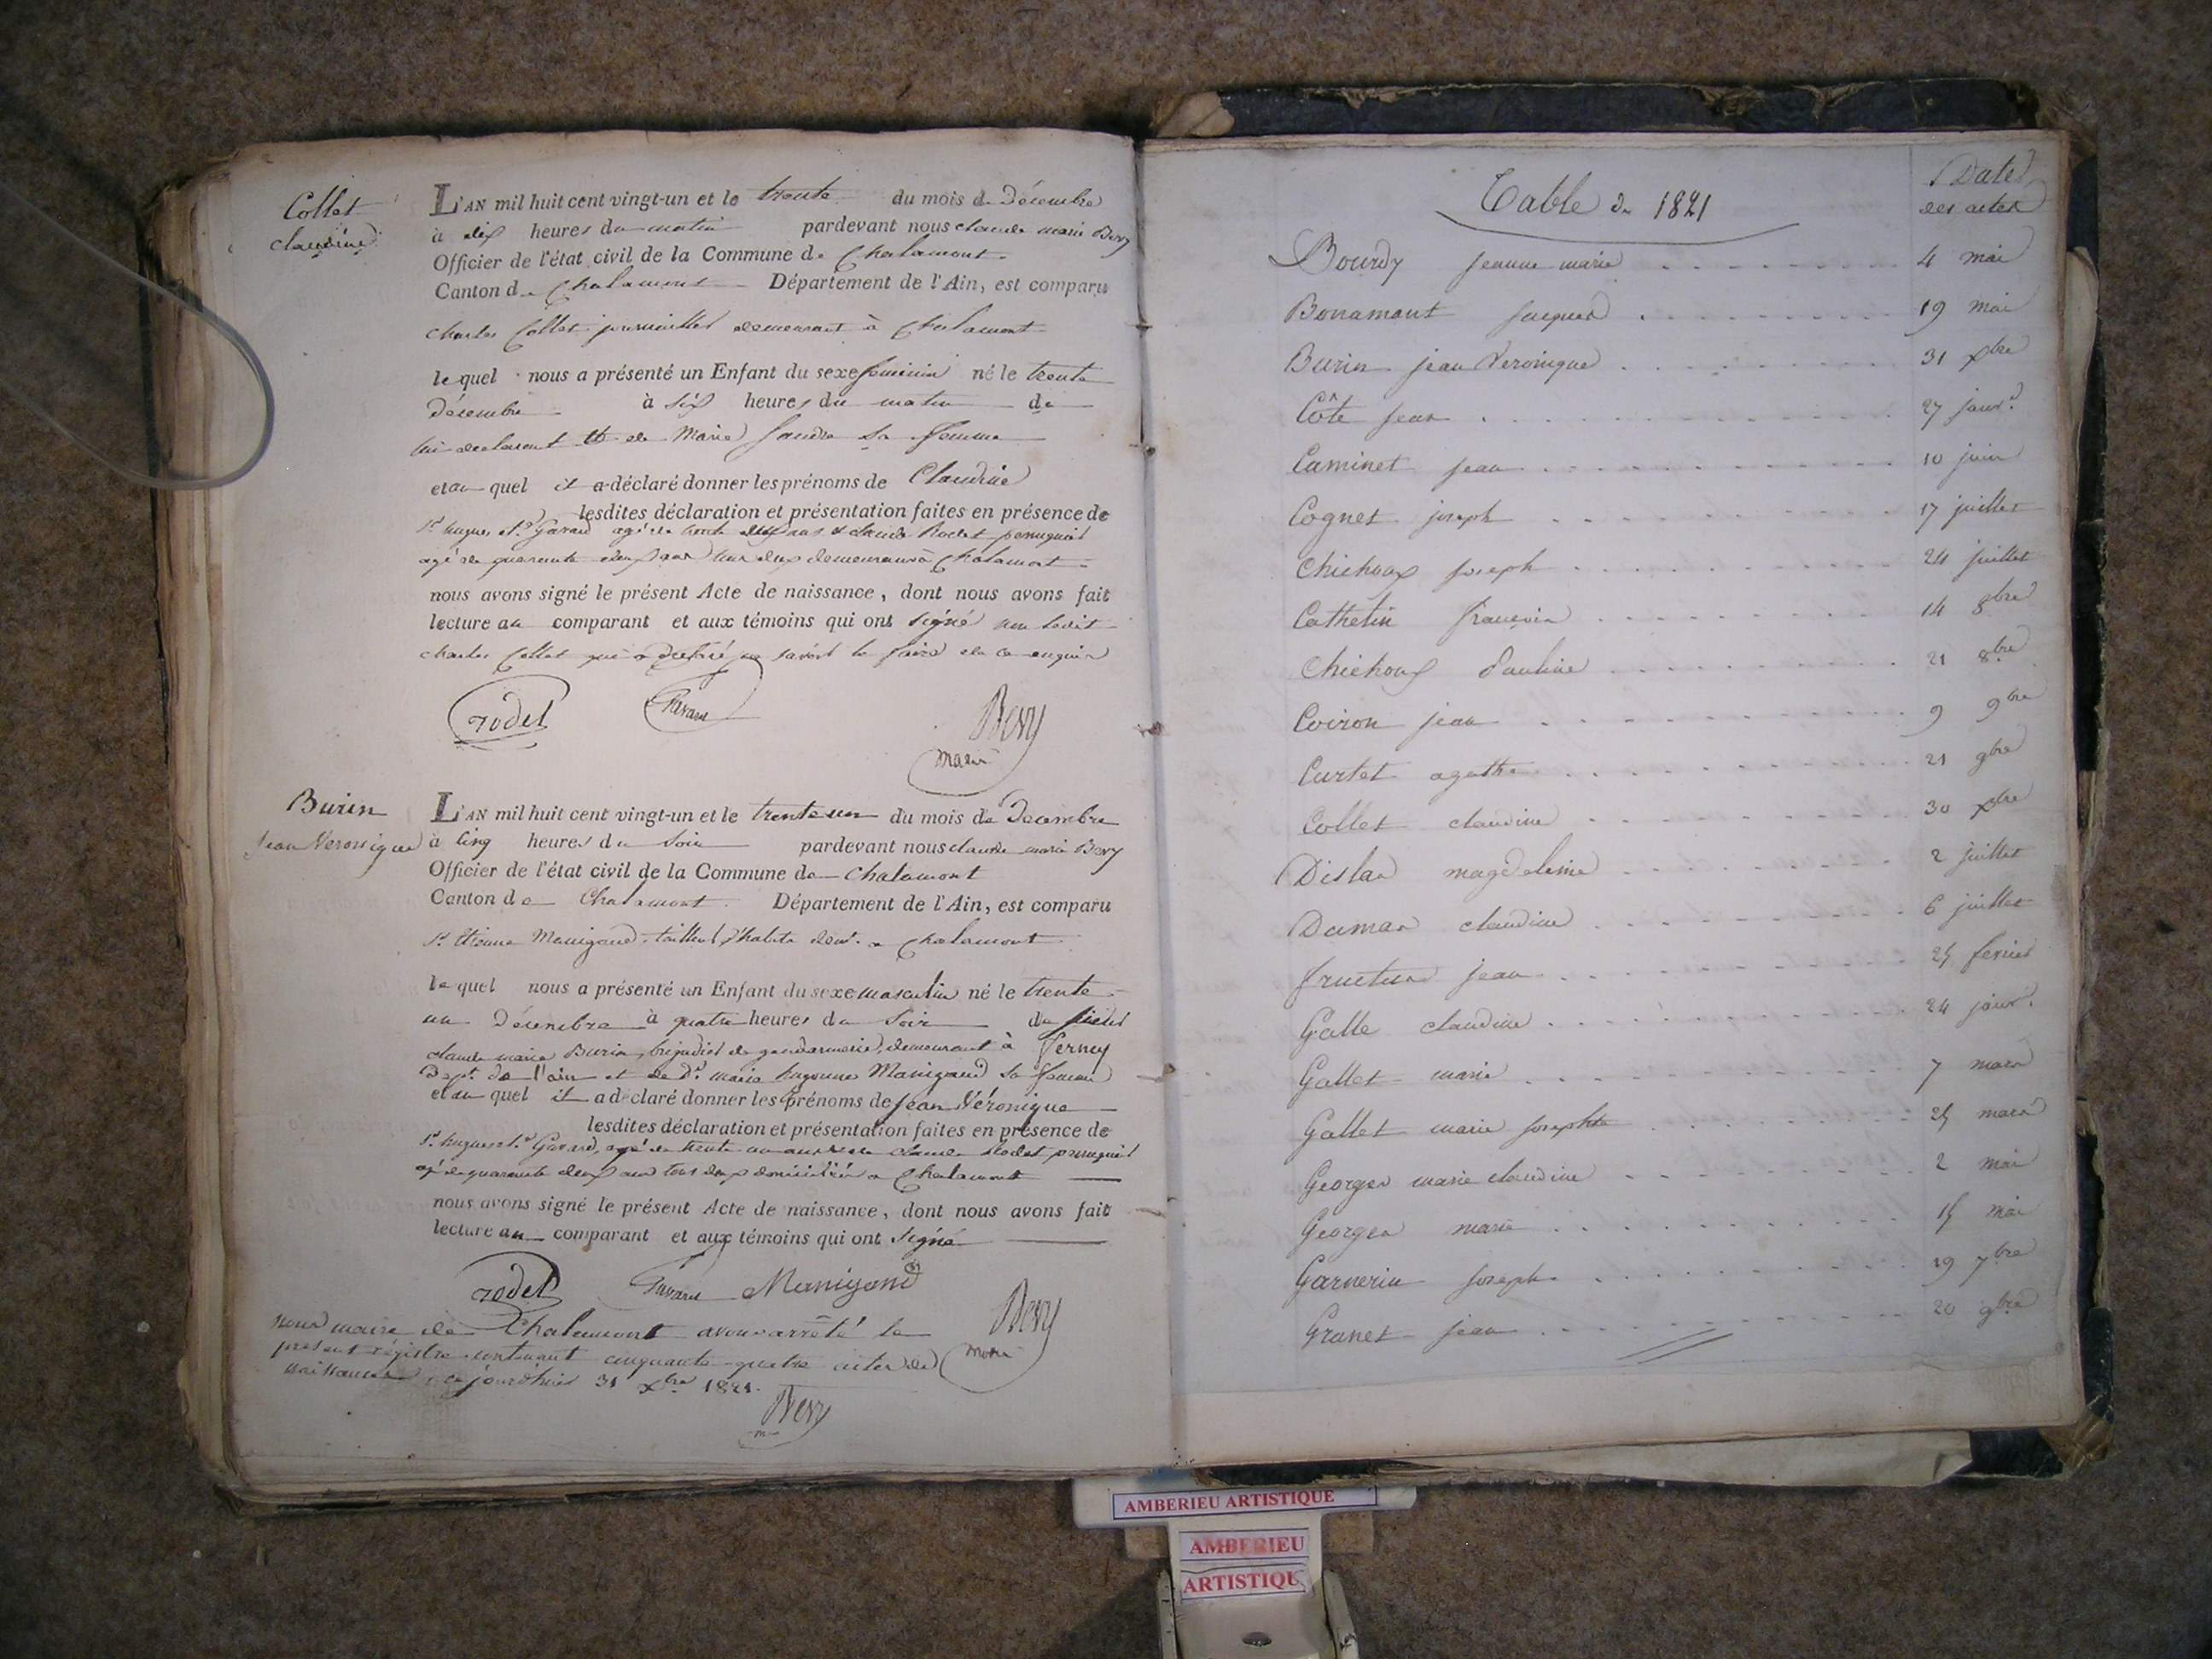 Collet
claudine
L'AN mil huit cent vingt-un et le trente du mois de Décembre
à dix heures du matin pardevant nous claude marie Bevy
Officier de l'état civil de la Commune de Chalamont
Canton de Chalamont Département de l'Ain, est comparu
charles Collet journaillier demeurant à Chalamont
lequel nous a présenté un Enfant du sexe feminin né le trente
décembre à six heures du matin de
lui declarant et de Marie sa femme
et au quel il a déclaré donner les prénoms de Claudine
lesdites déclaration et présentation faites en présence de
Sr hugues Gavard agé de trente ans et claude Rodet perruquier
agé de quarante deux ans tous deux demeurans à Chalamont
nous avons signé le présent Acte de naissance, dont nous avons fait
lecture au comparant et aux témoins qui ont signé non ledit
charles Collet qui a declaré ne savoir le faire de ce enquis
rodet Gavard Bevy
maire
Burin
jean Veronique
L'AN mil huit cent vingt-un et le trente un du mois de Décembre
à cinq heures du soir pardevant nous claude marie Bevy
Officier de l'état civil de la Commune de Chalamont
Canton de Chalamont Département de l'Ain, est comparu
Sr Etienne Manigand, tailleur d'habits demt. a Chalamont
lequel nous a présenté un Enfant du sexe masculin né le trente
un Décembre à quatre heures du soir de sieur
claude marie Burin, brigadier de gendarmerie, demeurant à Ferney
Dept. de l'ain et de De. marie hugonne Manigand sa femme
et au quel il a déclaré donner les prénoms de jean Véronique
lesdites déclaration et présentation faites en présence de
Sr hugues Gavard, agé de trente ans claude Rodet perruquier
agé de quarante deux ans tous deux domiciliés a Chalamont
nous avons signé le présent Acte de naissance, dont nous avons fait
lecture au comparant et aux témoins qui ont signé
rodet Gavard Manigand Bevy
maire
nous maire de Chalamont avons arrêté le
présent régistre contenant cinquante-quatre actes de
naissances, ce jourd'hui 31 xbre 1821.
Bevy
Table de 1821
Dates
des actes
Bourdy jeanne marie 4 mai
Bonamont jacques 19 mai
Burin jean Veronique 31 xbre
Côte jean 27 janvr.
Caminet jean 10 juin
Cognet joseph 17 juillet
Chichoux joseph 24 juillet
Cathelin françois 14 8bre
Chichoux Pauline 21 8bre
Coiron jean 9 9bre
Curtet agathe 21 9bre
Collet claudine 30 xbre
Dislas magdeleine 2 juillet
Dumas claudine 6 juillet
fructus jean 25 fevrier
Galle claudine 24 janvr.
Gallet marie 7 mars
Gallet marie josephte 25 mars
Georges marie claudine 2 mai
Georges marie 15 mai
Garnerin joseph 19 7bre
Granet jean 20 9bre
AMBERIEU ARTISTIQUE
AMBERIEU
ARTISTIQU